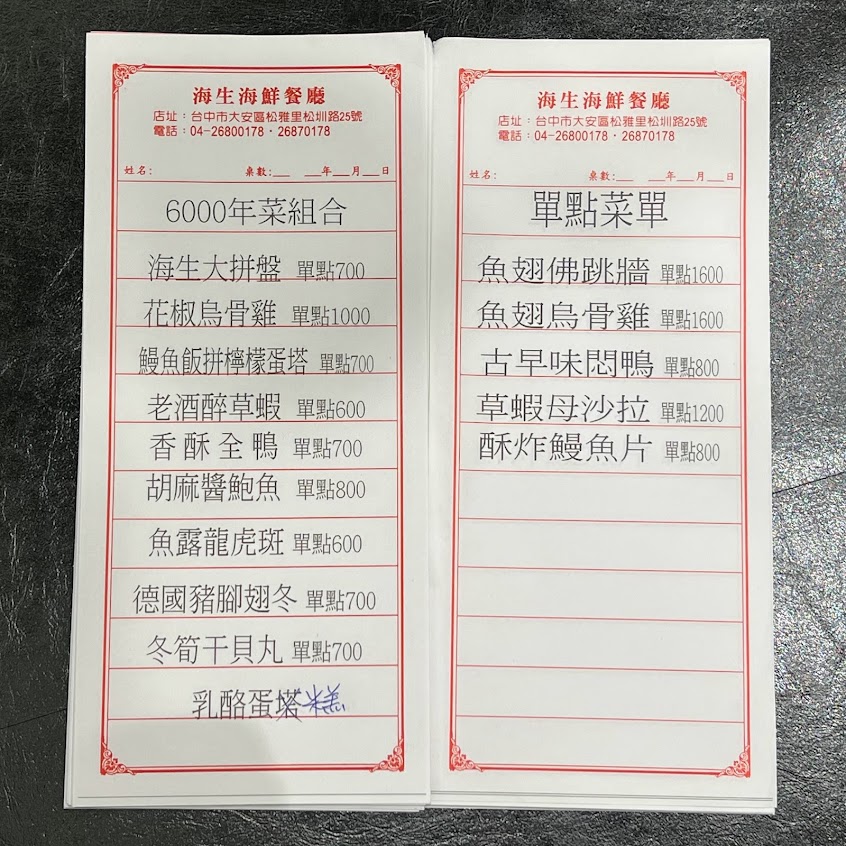 海生海鮮餐廳
店址：台中市大安區松雅里松圳路25號
電話：04-26800178·26870178
姓名： 桌數：__ __年__月__日
6000年菜組合
海生大拼盤 單點700
花椒烏骨雞 單點1000
鰻魚飯拼檸檬蛋塔 單點700
老酒醉草蝦 單點600
香酥全鴨 單點700
胡麻醬鮑魚 單點800
魚露龍虎斑 單點600
德國豬腳翅冬 單點700
冬筍干貝丸 單點700
乳酪蛋塔糕
海生海鮮餐廳
店址：台中市大安區松雅里松圳路25號
電話：04-26800178·26870178
姓名： 桌數：__ __年__月__日
單點菜單
魚翅佛跳牆 單點1600
魚翅烏骨雞 單點1600
古早味悶鴨 單點800
草蝦母沙拉 單點1200
酥炸鰻魚片 單點800